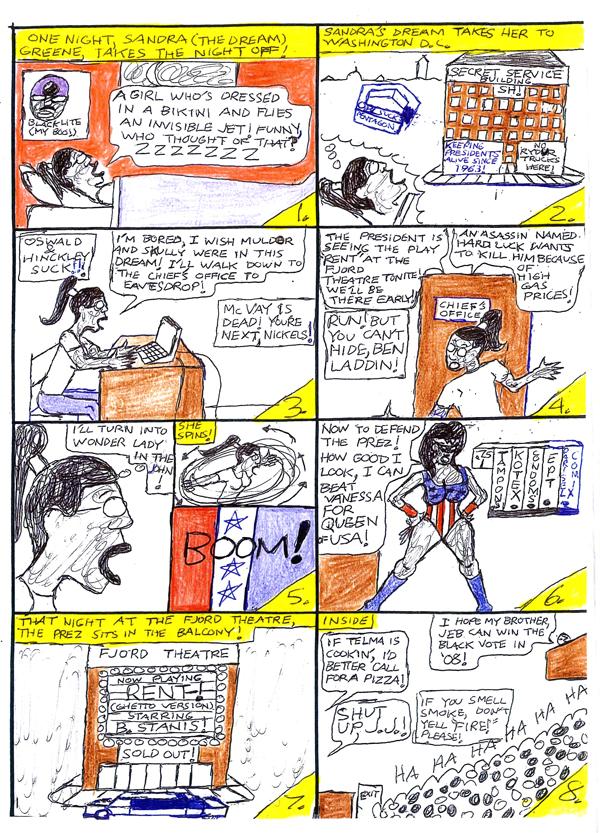 ONE NIGHT, SANDRA (THE DREAM)
GREENE, TAKES THE NIGHT OFF!
BLACKLITE
(MY BOSS)
A GIRL WHO'S DRESSED
IN A BIKINI AND FLIES
AN INVISIBLE JET! FUNNY
WHO THOUGHT OF THAT?
ZZZZZZZ
1.
SANDRA'S DREAM TAKES HER TO
WASHINGTON D.C.
PENTAGON
SECRET SERVICE
BUILDING
SH!
KEEPING
PRESIDENTS
ALIVE SINCE
1963!
NO
RYDER
TRUCKS
HERE!
2.
OSWALD
HINCKLEY
SUCK!!
I'M BORED, I WISH MULDOR
AND SKULLY WERE IN THIS
DREAM! I'LL WALK DOWN TO
THE CHIEF'S OFFICE TO
EAVESDROP!
MCVAY IS
DEAD! YOU'RE
NEXT, NICKELS!
3.
THE PRESIDENT IS
SEEING THE PLAY
"RENT" AT THE
FJORD
THEATRE TONITE!
WE'LL BE
THERE EARLY!
AN ASASSIN NAMED
HARD LUCK WANTS
TO KILL HIM BECAUSE
OF
HIGH
GAS
PRICES!
CHIEF'S
OFFICE
RUN! BUT
YOU CAN'T
HIDE, BEN
LADDIN!
4.
I'LL TURN INTO
WONDER LADY
IN THE
JOHN
!
SHE
SPINS!
BOOM!
5.
NOW TO DEFEND
THE PREZ!
HOW GOOD I
LOOK, I CAN
BEAT
VANESSA
FOR
QUEEN
OF USA!
25¢
TAMPONS
KOTEX
CONDOMS
EPT
COMIX
6.
THAT NIGHT AT THE FJORD THEATRE,
THE PREZ SITS IN THE BALCONY!
FJORD THEATRE
NOW PLAYING
RENT!
(GHETTO VERSION)
STARRING
B. STANIS!
SOLD OUT!
7.
INSIDE
IF TELMA IS
COOKIN, I'D
BETTER CALL
FOR A PIZZA!
I HOPE MY BROTHER,
JEB CAN WIN THE
BLACK VOTE IN
'08!
SHUT
UP J.J.!
IF YOU SMELL
SMOKE, DON'T
YELL "FIRE!"
PLEASE!
HA HA HA HA HA HA HA
EXIT
8.